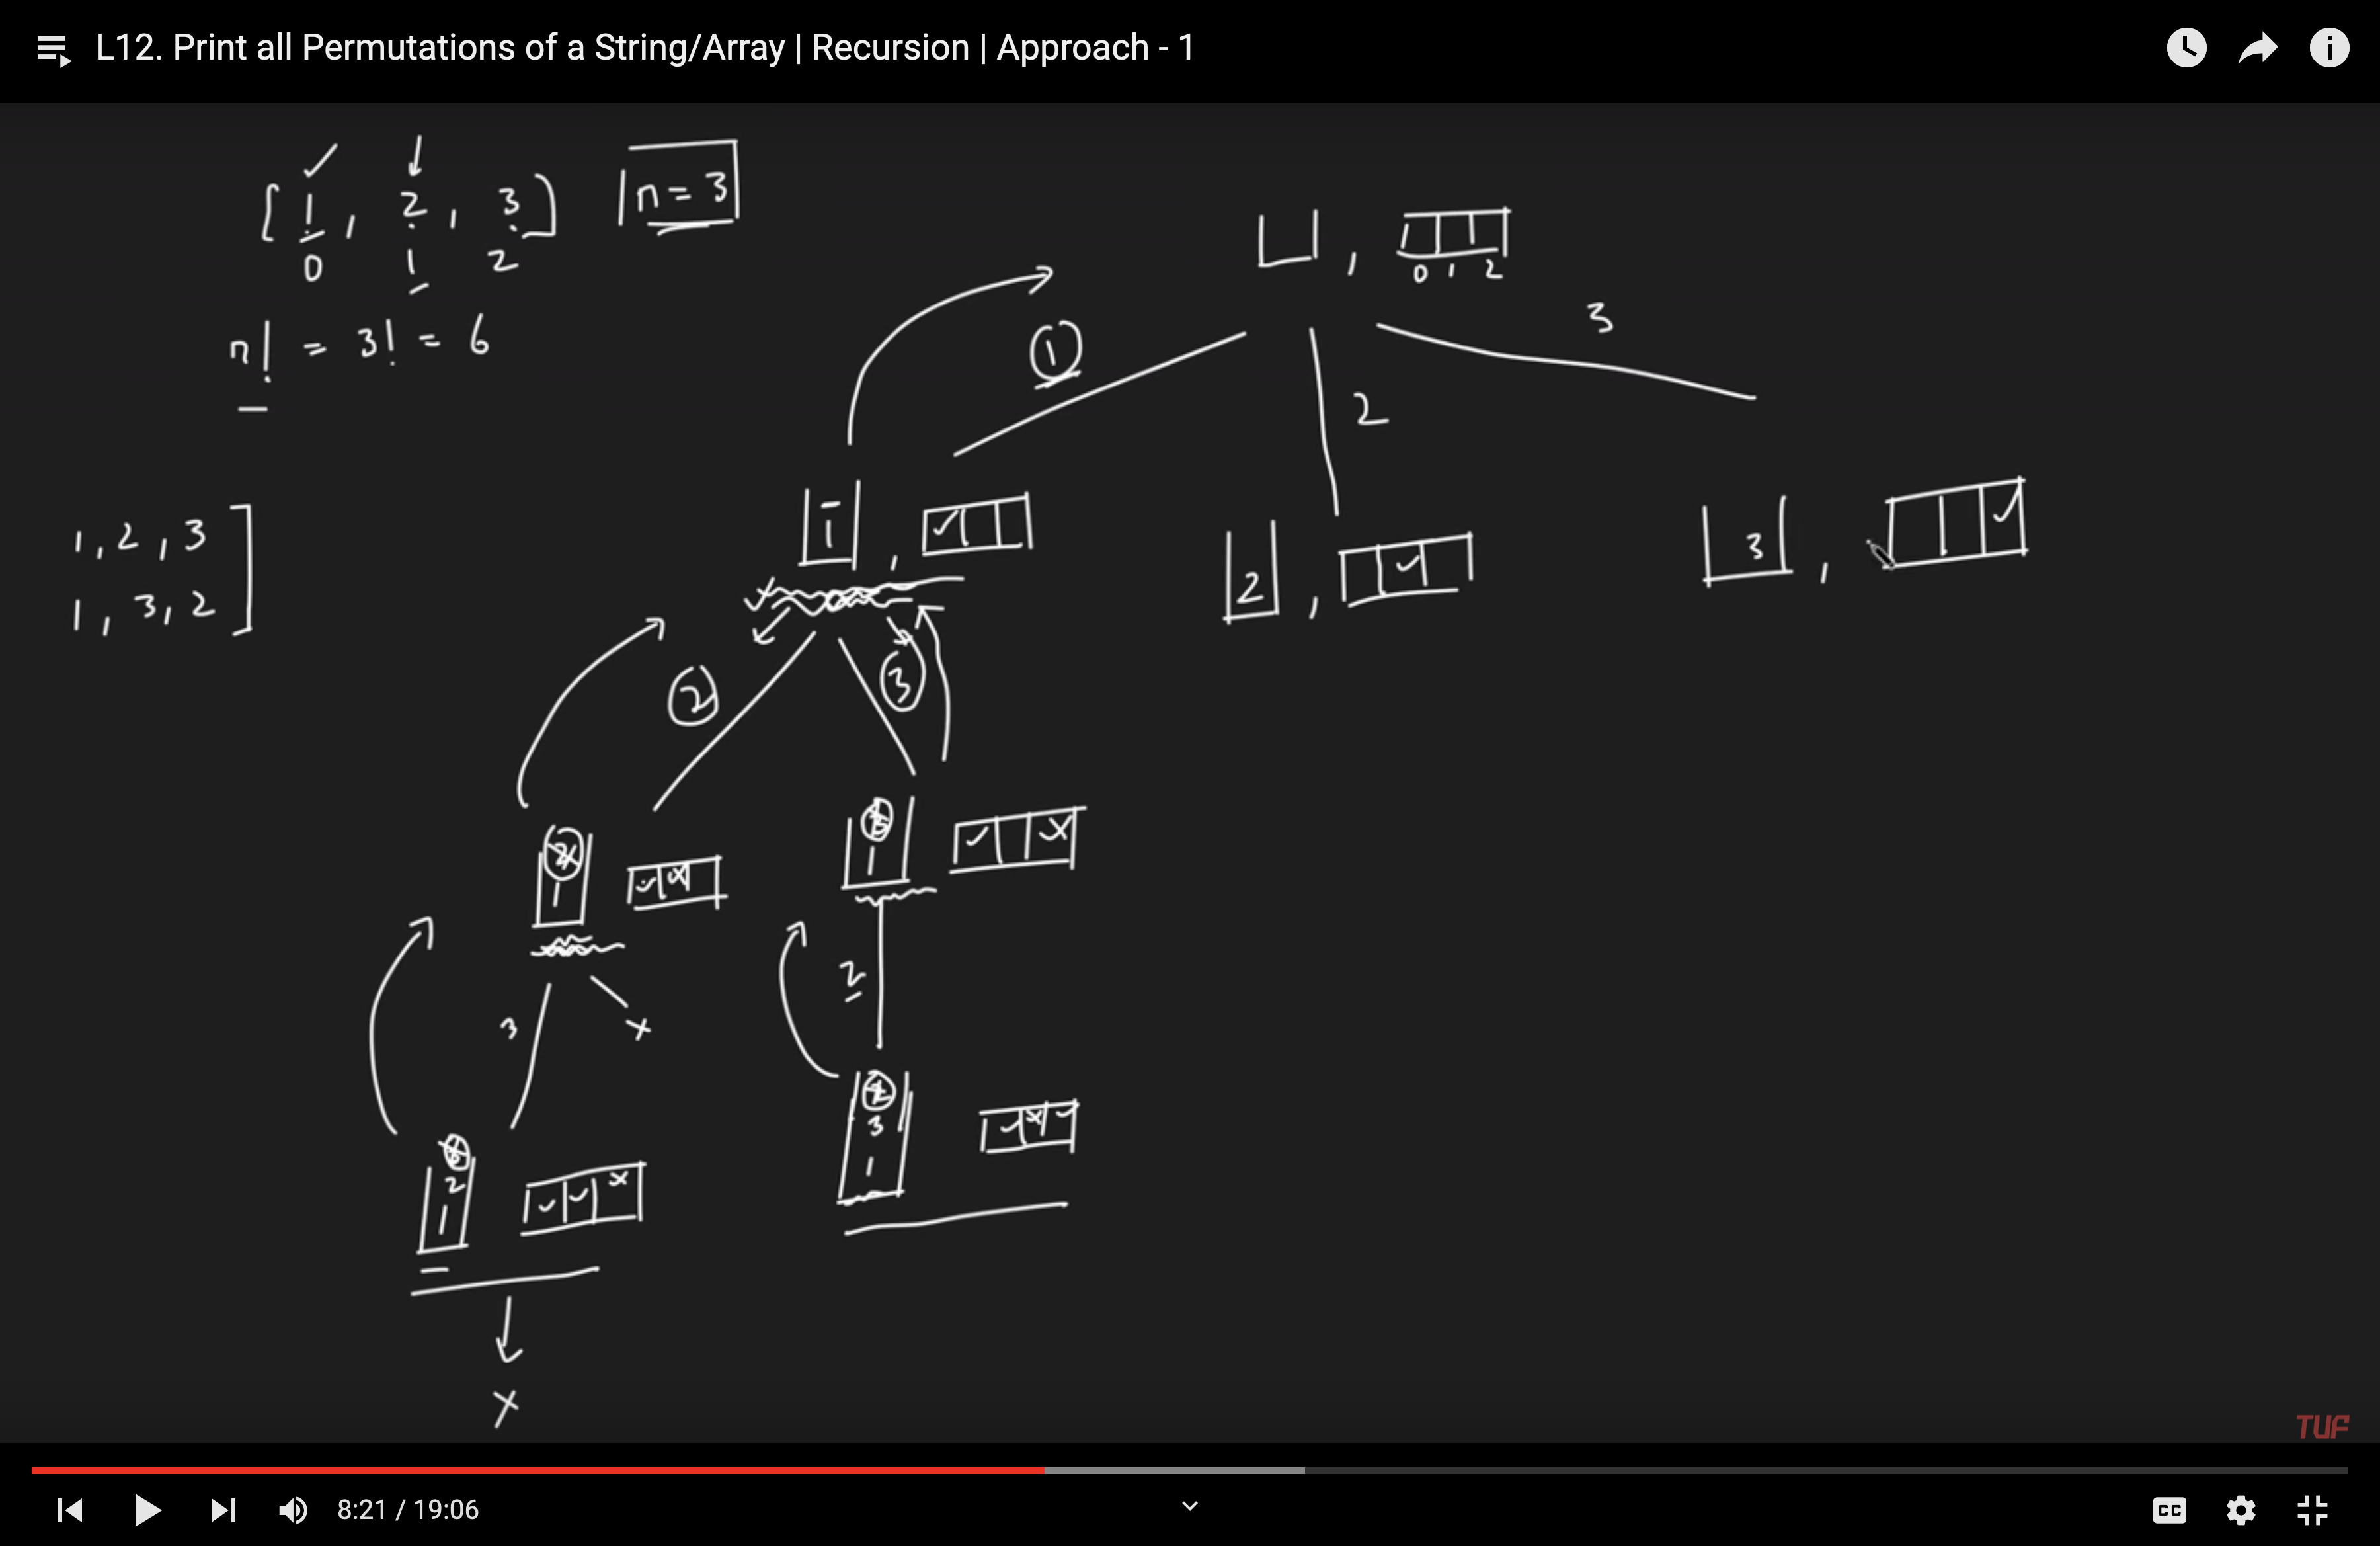 L12. Print all Permutations of a String/Array | Recursion | Approach - 1
[1, 2, 3]
n = 3
0 1 2
n! = 3! = 6
,
0 1 2
1
2
3
1, 2, 3
1, 3, 2
1
,
2
,
3
,
2
3
1
1
3
x
2
2
1
3
1
x
TUF
8:21 / 19:06
CC